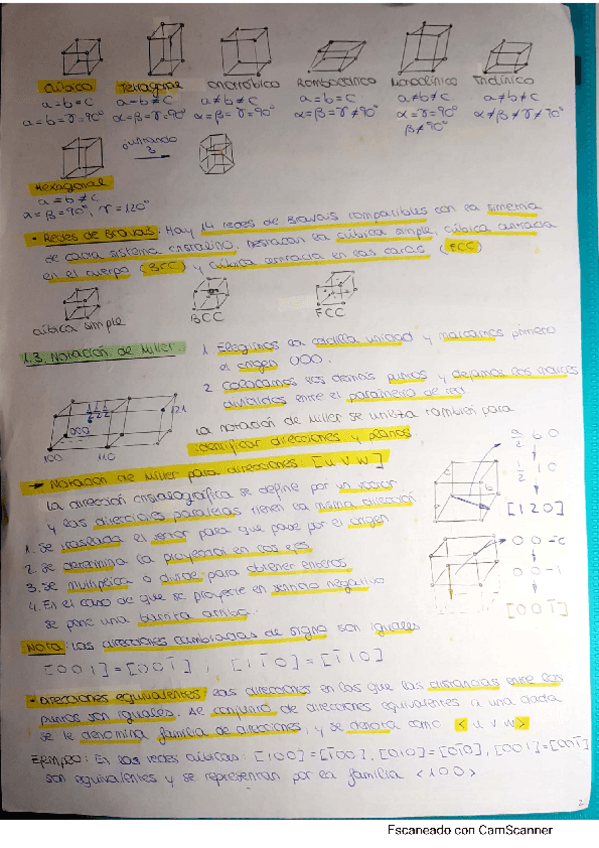 Cúbico Tetragonal Ortorrómbico Romboédrico Monoclínico Triclínico
a=b=c a=b≠c a≠b≠c a=b=c a≠b≠c a≠b≠c
α=β=γ=90° α=β=γ=90° α=β=γ=90° α=β=γ≠90° α=γ=90° α≠β≠γ≠90°
β≠90°
juntando
3
Hexagonal
a=b≠c
α=β=90°, γ=120°
• Redes de Bravais: Hay 14 redes de Bravais compatibles con la simetría
de cada sistema cristalino. Destacan la cúbica simple, cúbica centrada
en el cuerpo (BCC) y cúbica centrada en las caras (FCC)
cúbica simple BCC FCC
1.3. Notación de Miller.
1. Elegimos la celdilla unidad y marcamos primero
el origen 000.
2. Colocamos los demás puntos y dejamos los índices
divididos entre el parámetro de red
000 ½½½ 121
100 110
La notación de Miller se utiliza también para
identificar direcciones y planos.
→ Notación de Miller para direcciones: [u v w]
La dirección cristalográfica se define por un vector
y las direcciones paralelas tienen la misma dirección
1. Se traslada el vector para que pase por el origen
2. Se determina la proyección en los ejes
3. Se multiplica o divide para obtener enteros
4. En el caso de que se proyecte en sentido negativo
se pone una barrita arriba.
a/2 b 0
½ 1 0
[120]
0 0 -c
0 0 -1
[001̄]
Nota: Las direcciones cambiadas de signo son iguales
[001]=[001̄] ; [11̄0]=[1̄10]
• Direcciones equivalentes: Las direcciones en las que las distancias entre los
puntos son iguales. Al conjunto de direcciones equivalentes a una dada
se le denomina familia de direcciones, y se denota como <u v w>
Ejemplo: En las redes cúbicas: [100]=[1̄00], [010]=[01̄0], [001]=[001̄]
son equivalentes y se representan por la familia <100>
2
Escaneado con CamScanner